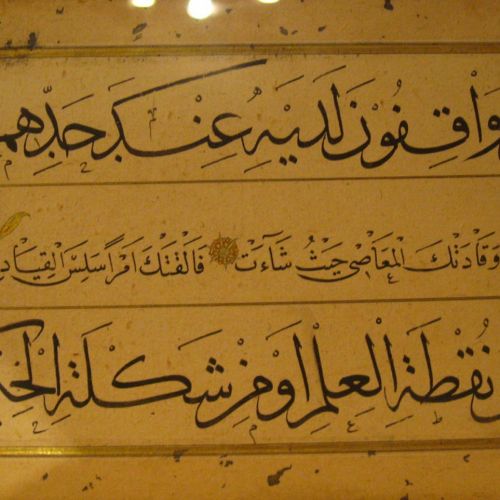 وَاقِفُونَ لَدَيْهِ عِنْدَ حَدِّهِمِ
وَقَادَتْكَ الْمَعَاصِي حَيْثُ شَاءَتْ فَأَلْفَتْكَ امْرَأً سَلِسَ الْقِيَادِ
نُقْطَةِ الْعِلْمِ أَوْ مِنْ شَكْلَةِ